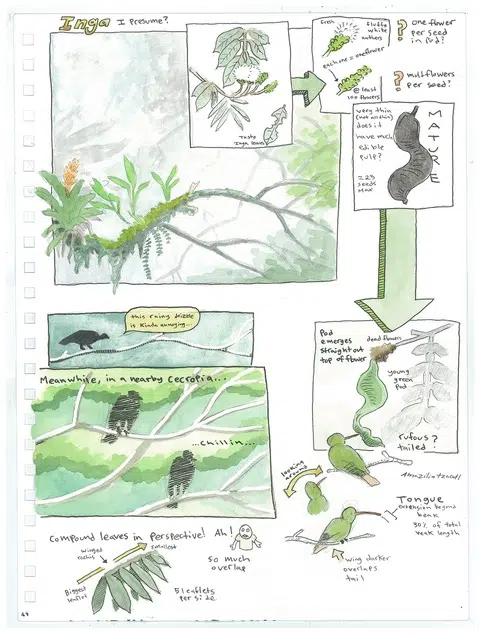 Inga I presume?
Tasty
Inga leaves
Fresh
fluffy
white
anthers
each one = one flower
@ least
100 flowers
? one flower
per seed
in pod?
? multflowers
per seed?
very thin
does it
have much
edible
pulp?
≈ 23
seeds
max
MATURE
this rainy drizzle
is kinda annoying...
Meanwhile, in a nearby Cecropia...
...chillin...
Pod
emerges
straight out
top of flower
dead flowers
young
green
pod
rufous?
tailed!
Amazilia tzacatl
looking
around
Tongue
extension beyond
beak
30% of total
beak length
wing darker
overlaps
tail
Compound leaves in perspective! Ah!
so much
overlap
winged
rachis
smallest
Biggest
leaflet
5 leaflets
per side